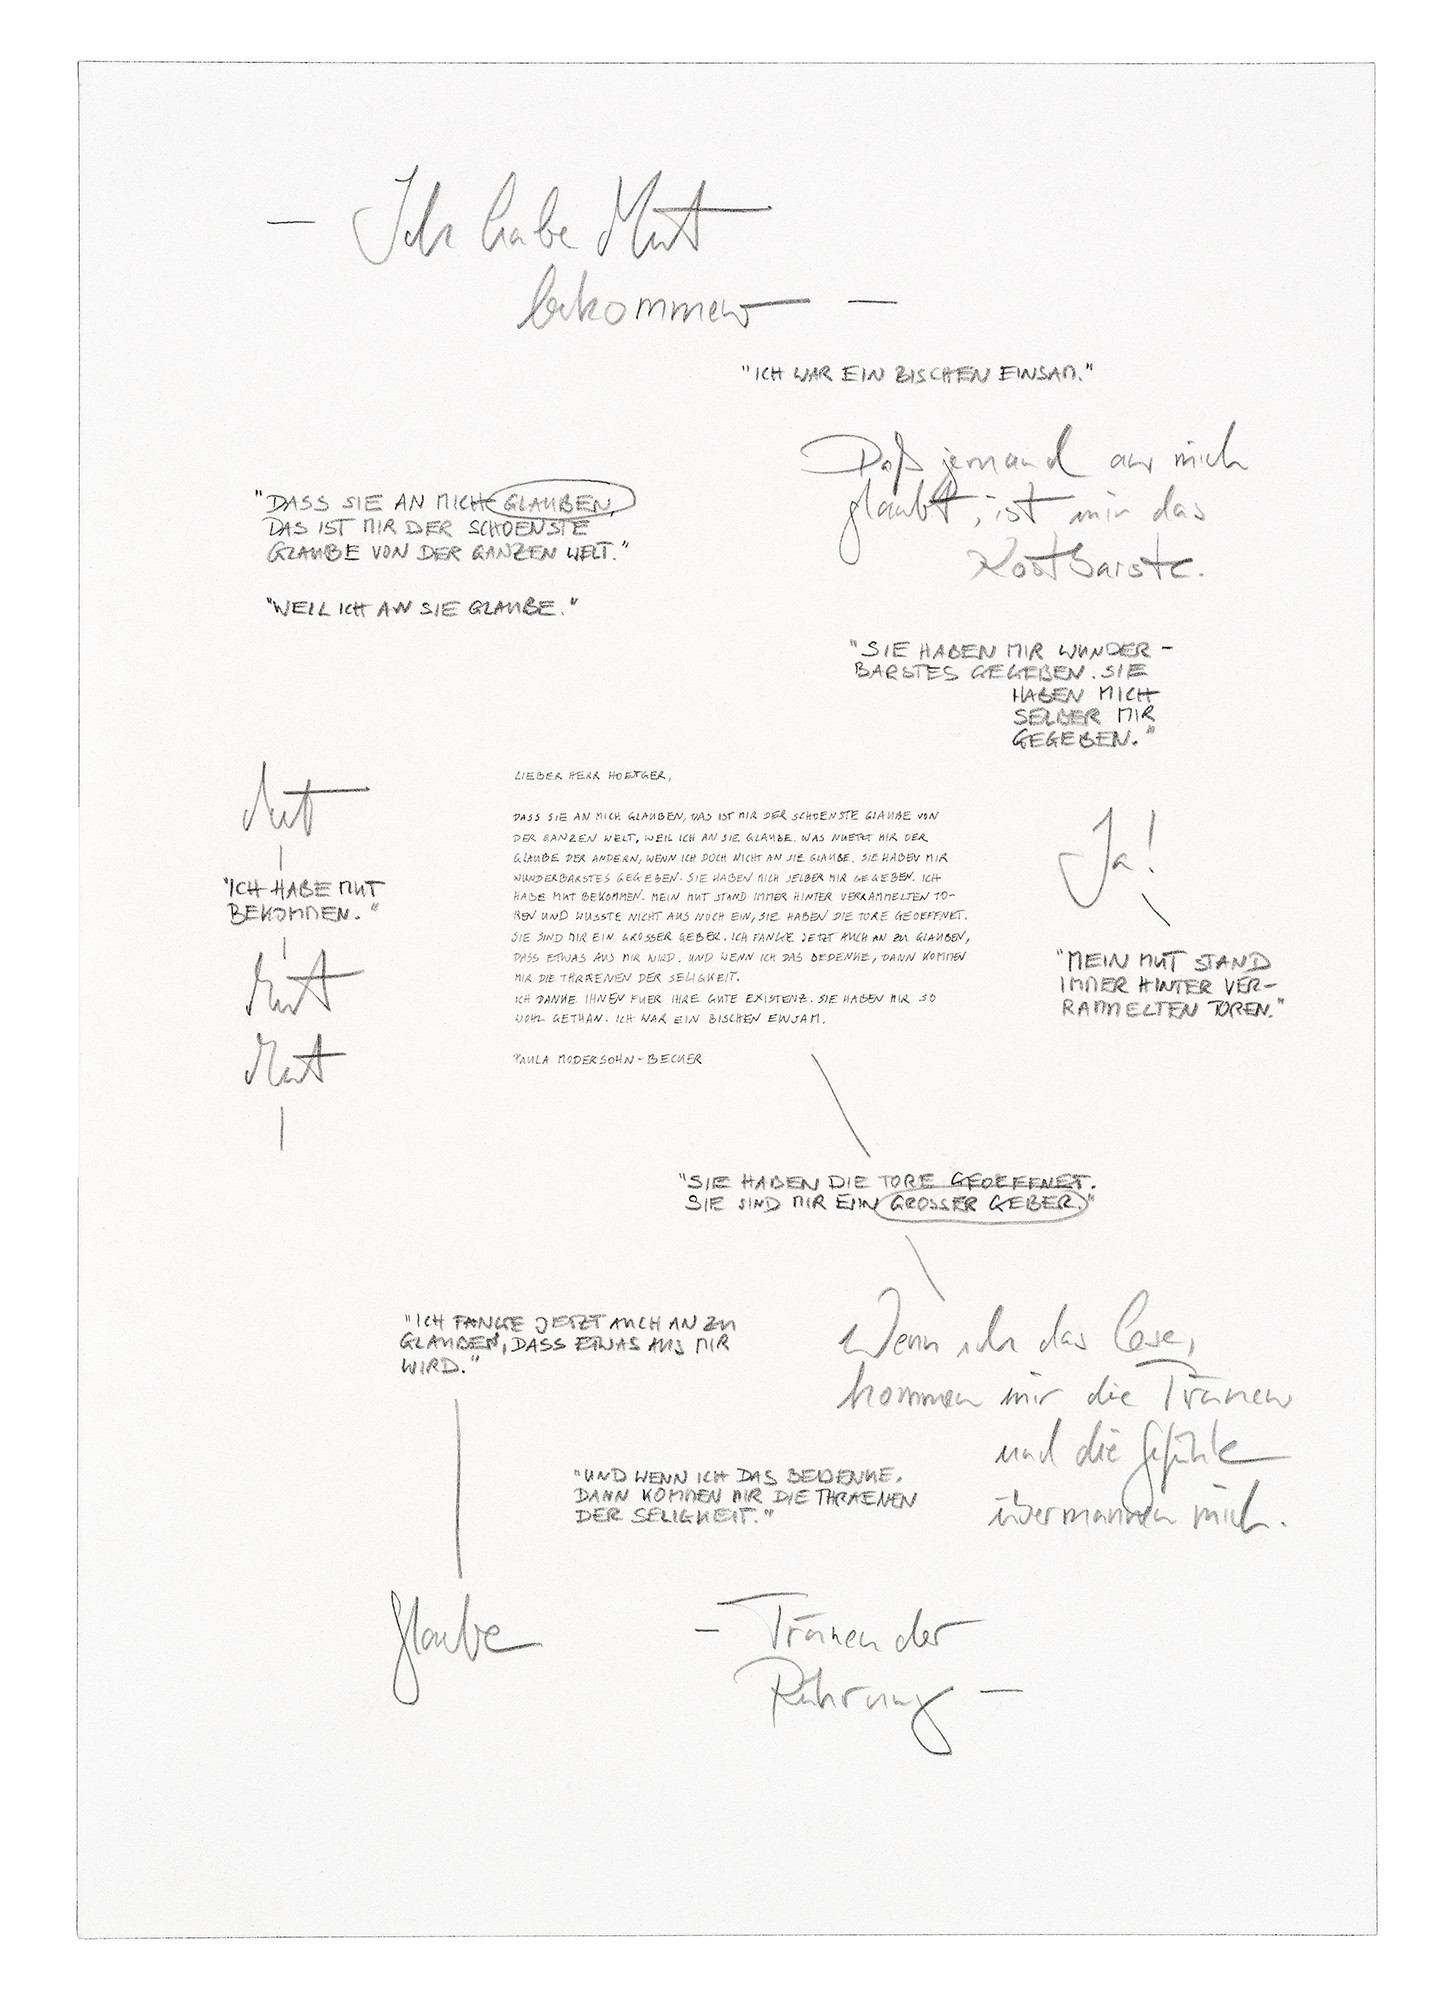 — Ich habe Mut
bekommen — —
"ICH WAR EIN BISCHEN EINSAM."
Daß jemand an mich
glaubt, ist mir das
Kostbarste.
"DASS SIE AN MICH GLAUBEN,
DAS IST MIR DER SCHOENSTE
GLAUBE VON DER GANZEN WELT."
"WEIL ICH AN SIE GLAUBE."
"SIE HABEN MIR WUNDER-
BARSTES GEGEBEN. SIE
HABEN MICH
SELBER MIR
GEGEBEN."
Mut
"ICH HABE MUT
BEKOMMEN."
Mut
Mut
LIEBER HERR HOETGER,
DASS SIE AN MICH GLAUBEN, DAS IST MIR DER SCHOENSTE GLAUBE VON
DER GANZEN WELT, WEIL ICH AN SIE GLAUBE. WAS NUETZT MIR DER
GLAUBE DER ANDERN, WENN ICH DOCH NICHT AN SIE GLAUBE. SIE HABEN MIR
WUNDERBARSTES GEGEBEN. SIE HABEN MICH SELBER MIR GEGEBEN. ICH
HABE MUT BEKOMMEN. MEIN MUT STAND IMMER HINTER VERRAMMELTEN TO-
REN UND WUSSTE NICHT AUS NOCH EIN, SIE HABEN DIE TORE GEOEFFNET.
SIE SIND MIR EIN GROSSER GEBER. ICH FANGE JETZT AUCH AN ZU GLAUBEN,
DASS ETWAS AUS MIR WIRD. UND WENN ICH DAS BEDENKE, DANN KOMMEN
MIR DIE THRAENEN DER SELIGKEIT.
ICH DANKE IHNEN FUER IHRE GUTE EXISTENZ. SIE HABEN MIR SO
WOHL GETHAN. ICH WAR EIN BISCHEN EINSAM.
PAULA MODERSOHN-BECKER
Ja!
"MEIN MUT STAND
IMMER HINTER VER-
RAMMELTEN TOREN."
"SIE HABEN DIE TORE GEOEFFNET.
SIE SIND MIR EIN GROSSER GEBER."
"ICH FANGE JETZT AUCH AN ZU
GLAUBEN, DASS ETWAS AUS MIR
WIRD."
Wenn ich das lese,
kommen mir die Tränen
und die Gefühle
übermannen mich.
"UND WENN ICH DAS BEDENKE,
DANN KOMMEN MIR DIE THRAENEN
DER SELIGKEIT."
Glaube
— Tränen der
Rührung —